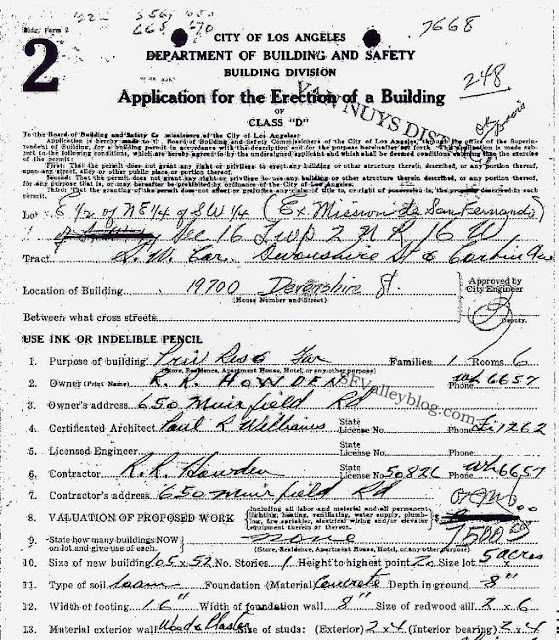 7668
Bldg. Form 2
CITY OF LOS ANGELES
DEPARTMENT OF BUILDING AND SAFETY
BUILDING DIVISION
2
248
Application for the Erection of a Building
OF
CLASS "D"
VAN NUYS DISTRICT
To the Board of Building and Safety Commissioners of the City of Los Angeles:
Application is hereby made to the Board of Building and Safety Commissioners of the City of Los Angeles, through the office of the Superin-
tendent of Building, for a building permit in accordance with the description and for the purpose hereinafter set forth. This application is made sub-
ject to the following conditions, which are hereby agreed to by the undersigned applicant and which shall be deemed conditions entering into the exercise
of the permit:
First: That the permit does not grant any right or privilege to erect any building or other structure therein described, or any portion thereof,
upon any street, alley or other public place or portion thereof.
Second: That the permit does not grant any right or privilege to use any building or other structure therein described, or any portion thereof,
for any purpose that is, or may hereafter be prohibited by ordinance of the City of Los Angeles.
Third: That the granting of the permit does not affect or prejudice any claim of title to, or right of possession in, the property described in such
permit.
Lot E 1/2 of NE 1/4 of SW 1/4 (Ex Mission de San Fernando)
Sec 16 Twp 2 N R 16 W
Tract S.W. Cor. Devonshire St & Corbin Ave
Location of Building 19700 Devonshire St.
(House Number and Street)
Approved by
City Engineer
Between what cross streets
Deputy.
USE INK OR INDELIBLE PENCIL
1. Purpose of building Priv Res & Gar Families 1 Rooms 6
(Store, Residence, Apartment House, Hotel, or any other purpose)
2. Owner (Print Name) R. R. HOWDEN Phone Wh 6657
SFValleyblog.com
3. Owner's address 650 Muirfield Rd
4. Certified Architect Paul R Williams State License No. Phone Fi 1262
5. Licensed Engineer State License No. Phone
6. Contractor R. R. Howden State License No. 50826 Phone Wh 6657
7. Contractor's address 650 Muirfield Rd
8. VALUATION OF PROPOSED WORK {Including all labor and material and all permanent lighting, heating, ventilating, water supply, plumb-ing, fire sprinkler, electrical wiring and/or elevator equipment therein or thereon.} $ 7500.00
9. State how many buildings NOW on lot and give use of each. none
(Store, Residence, Apartment House, Hotel, or any other purpose)
10. Size of new building 105 x 52 No. Stories 1 Height to highest point 20 Size lot 5 acres
11. Type of soil loam Foundation (Material) Concrete Depth in ground 8"
12. Width of footing 16" Width of foundation wall 8" Size of redwood sill 2 x 6
13. Material exterior wall Wood & Plaster Size of studs: (Exterior) 2 x 4 (Interior bearing) 2 x 4